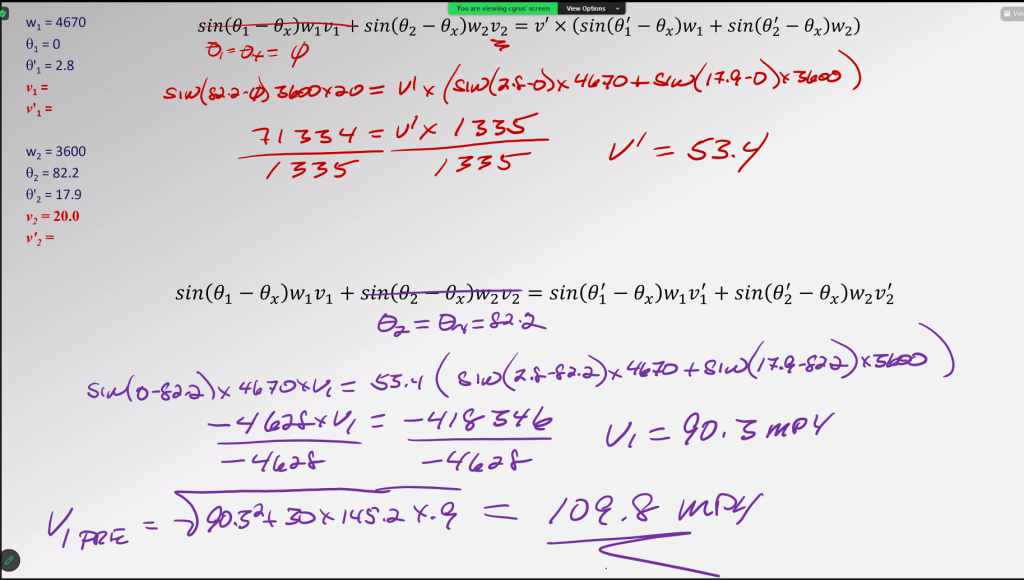 You are viewing cgrus' screen View Options
w₁ = 4670
θ₁ = 0
θ'₁ = 2.8
v₁ =
v'₁ =
w₂ = 3600
θ₂ = 82.2
θ'₂ = 17.9
v₂ = 20.0
v'₂ =
sin(θ₁ − θₓ)w₁v₁ + sin(θ₂ − θₓ)w₂v₂ = v' × (sin(θ₁′ − θₓ)w₁ + sin(θ₂′ − θₓ)w₂)
θ₁ = θₓ = φ
sin(82.2-φ) 3600×20 = v' × (sin(2.8-0)×4670 + sin(17.9-0)×3600)
71334 = v' × 1335
1335 1335
v' = 53.4
sin(θ₁ − θₓ)w₁v₁ + sin(θ₂ − θₓ)w₂v₂ = sin(θ₁′ − θₓ)w₁v₁′ + sin(θ₂′ − θₓ)w₂v₂′
θ₂ = θₓ = 82.2
sin(0-82.2)×4670×v₁ = 53.4 (sin(2.8-82.2)×4670 + sin(17.9-82.2)×3600)
-4628×v₁ = -418346
-4628 -4628
v₁ = 90.3 mpy
V₁ PRE = √90.3²+30×145.2×.9 = 109.8 mpy